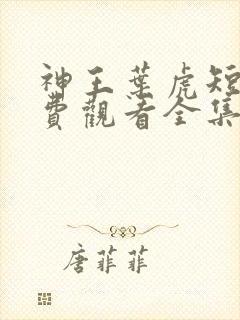 神王葉虎短
費觀看全集
唐菲菲